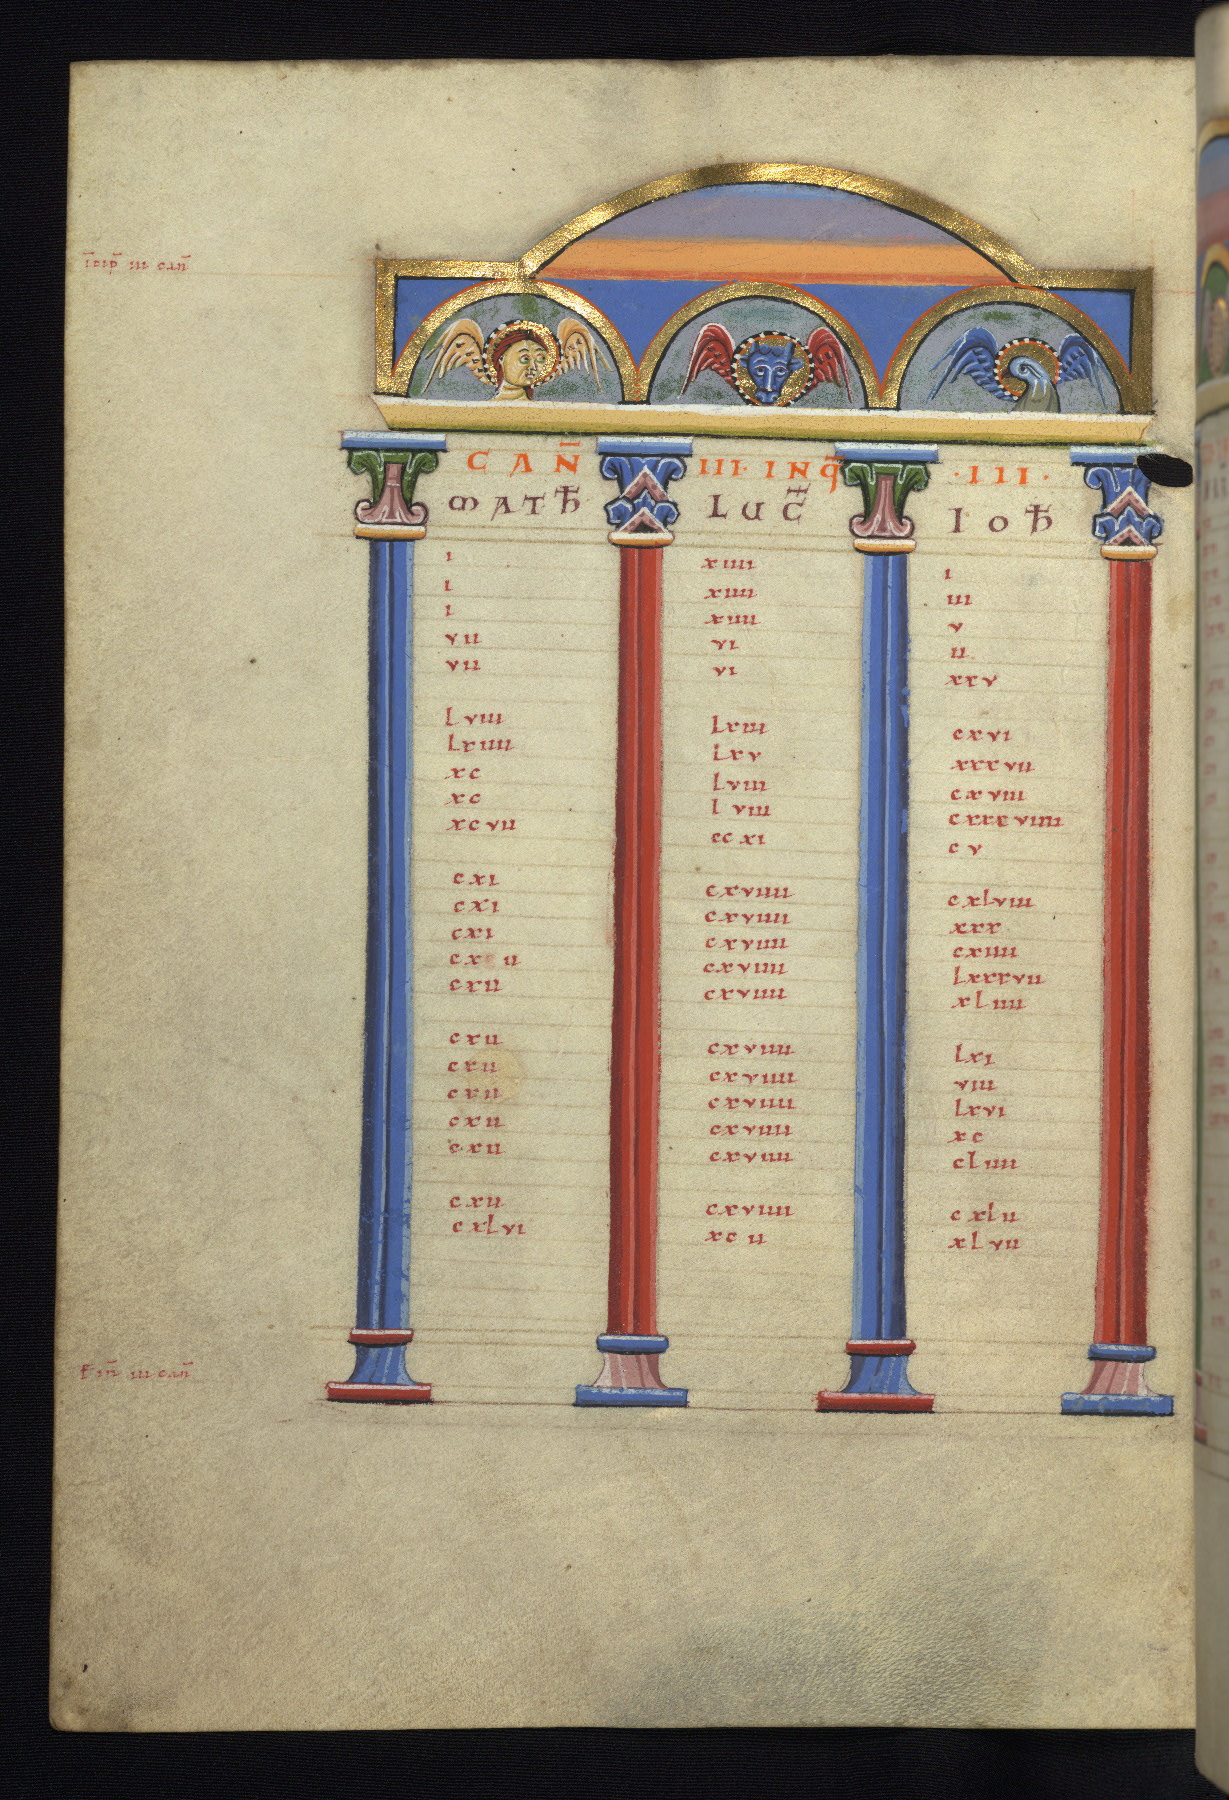 īcip̄ iii cań
CAN̄ III· INQ̄ ·III·
MATH̄ LUC̄ IOH̄
i xiiii i
i xiiii iii
i xiiii v
vii vi ii
vii vi xxv
lviii lxiii cxvi
lxiiii lxv xxxvii
xc lviii cxviii
xc lviii cxxxviiii
xcvii ccxi cv
cxi cxviiii cxlviii
cxi cxviiii xxx
cxi cxviiii cxiiii
cxii cxviiii lxxxvii
cxii cxviiii xliiii
cxii cxviiii lxi
cxii cxviiii viii
cxii cxviiii lxvi
cxii cxviiii xc
cxii cxviiii cliiii
cxii cxviiii cxlii
cxlvi xcii xlvii
iii cań